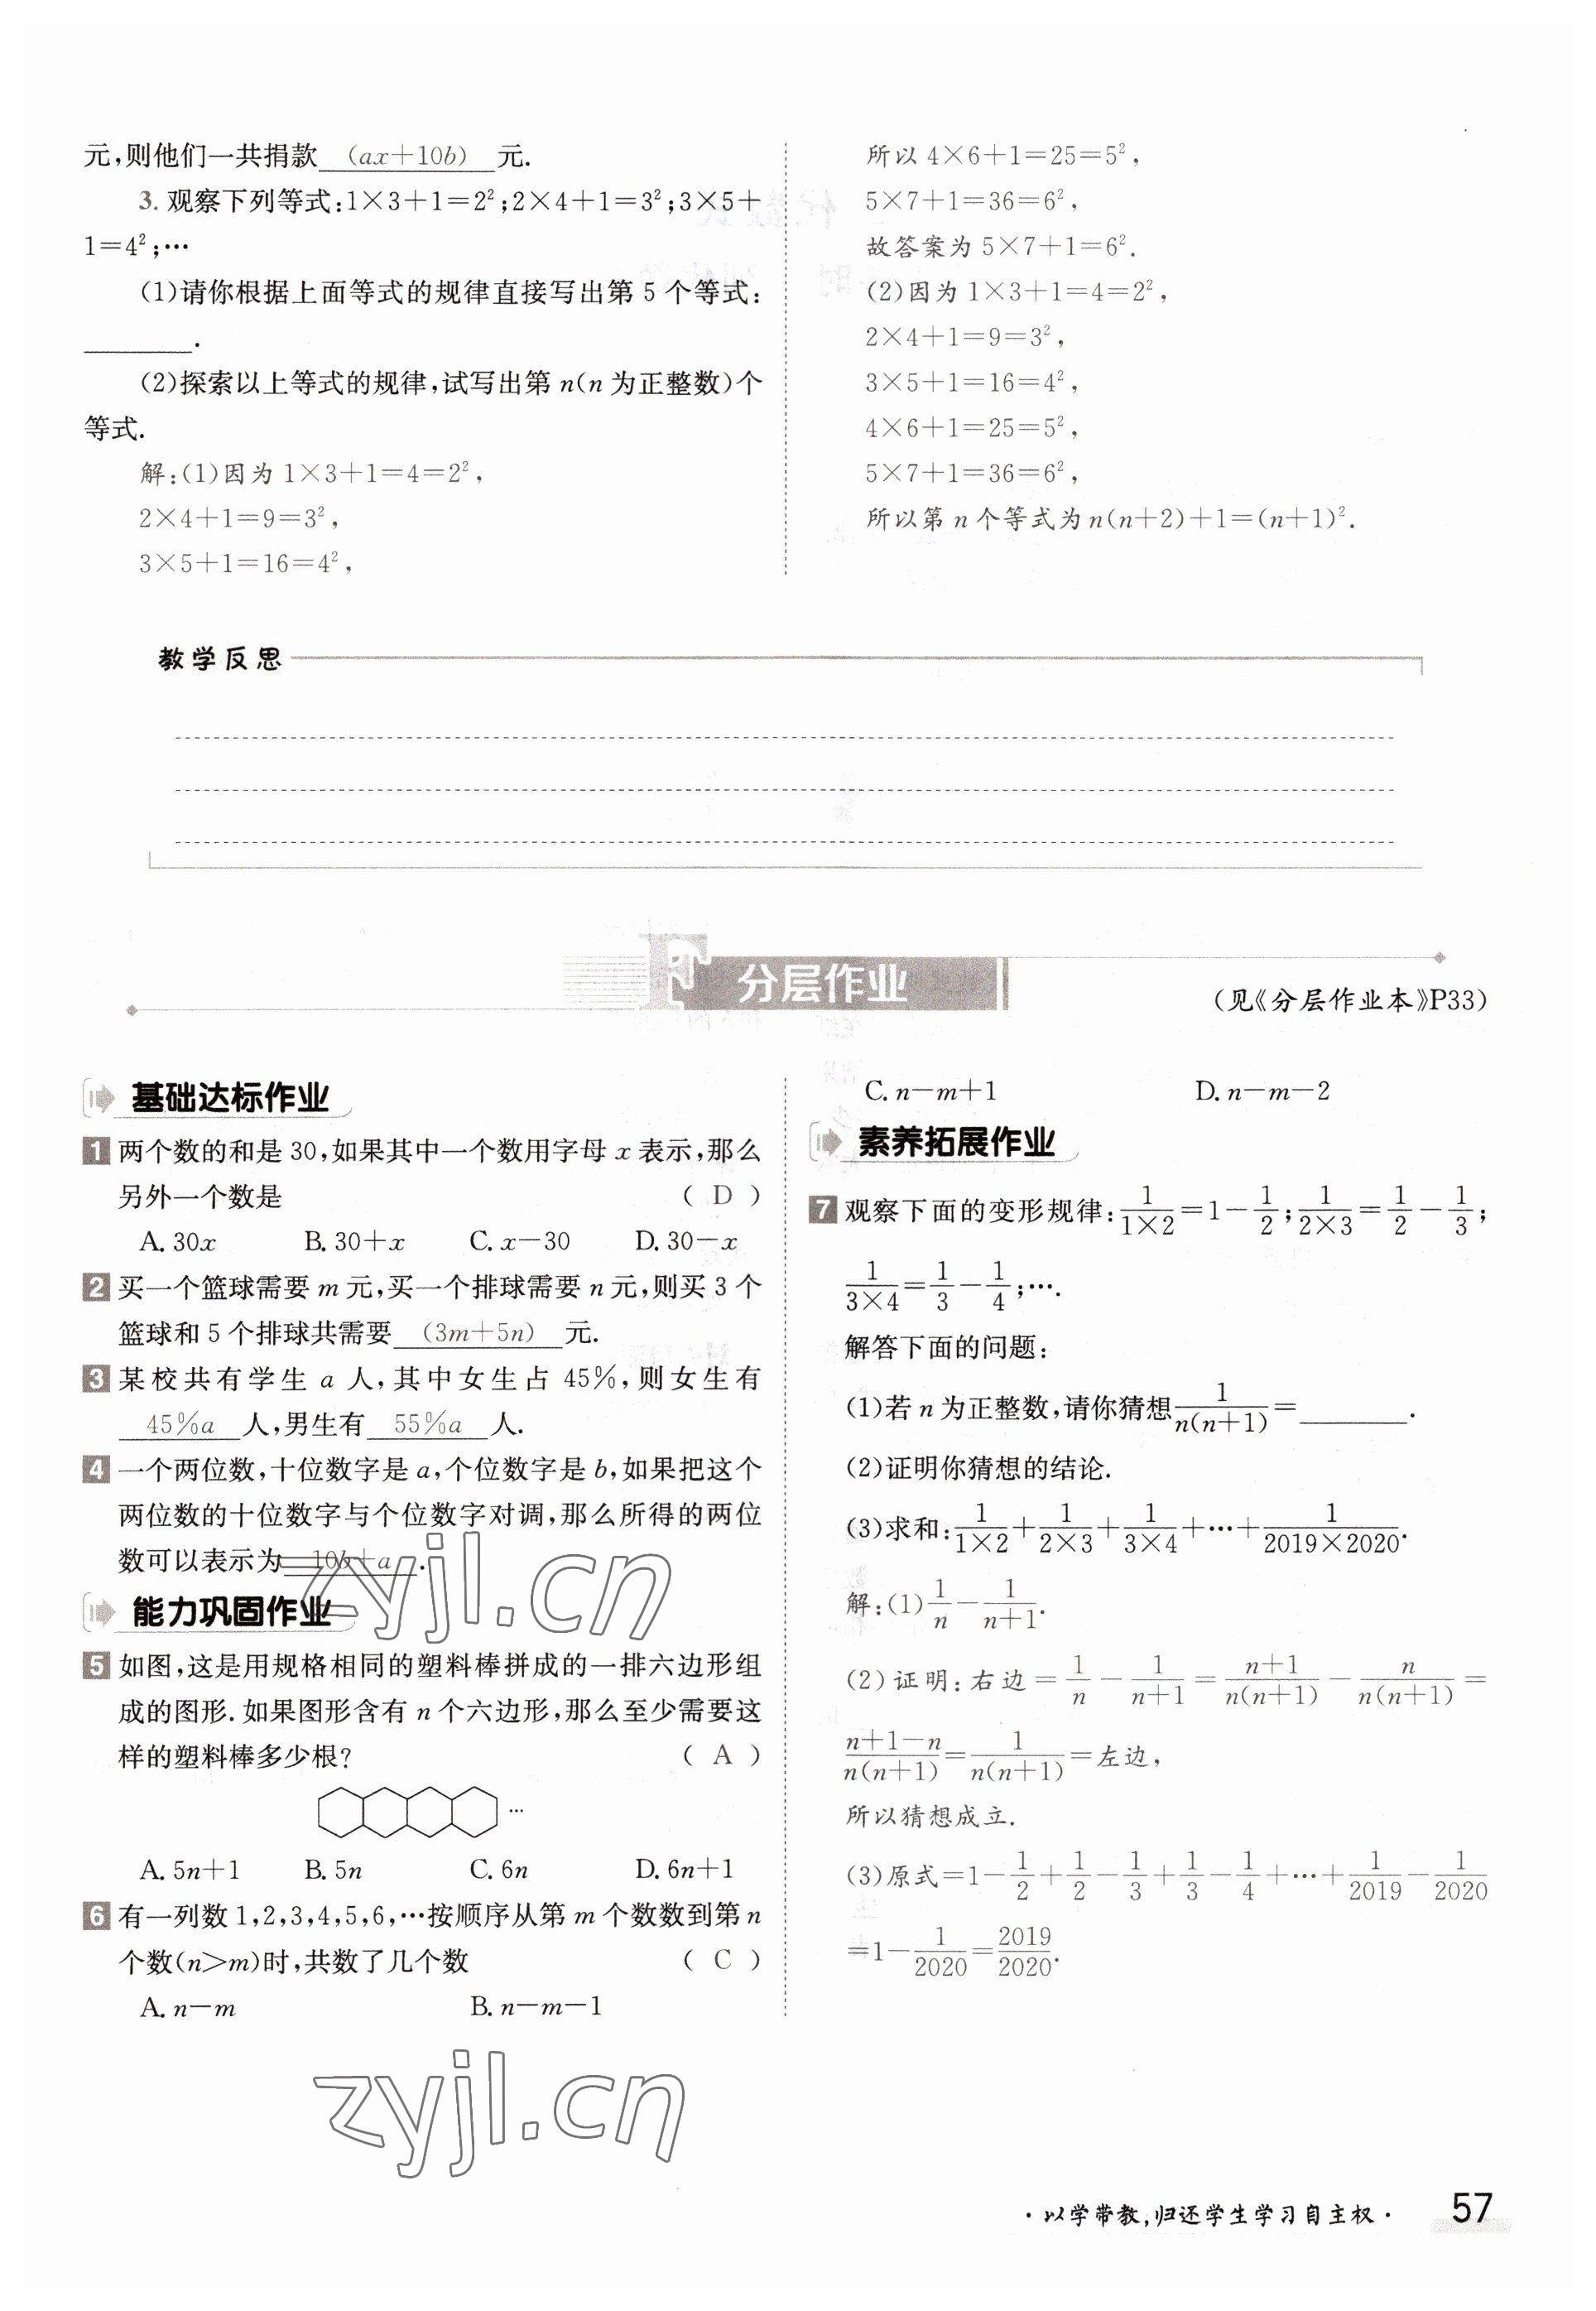 元,则他们一共捐款 (ax+10b) 元.
3. 观察下列等式:1×3+1=2²;2×4+1=3²;3×5+
1=4²;…
(1)请你根据上面等式的规律直接写出第 5 个等式:
________.
(2)探索以上等式的规律,试写出第 n(n 为正整数)个
等式.
解:(1)因为 1×3+1=4=2²,
2×4+1=9=3²,
3×5+1=16=4²,
所以 4×6+1=25=5²,
5×7+1=36=6²,
故答案为 5×7+1=6².
(2)因为 1×3+1=4=2²,
2×4+1=9=3²,
3×5+1=16=4²,
4×6+1=25=5²,
5×7+1=36=6²,
所以第 n 个等式为 n(n+2)+1=(n+1)².
教学反思
分层作业
(见《分层作业本》P33)
基础达标作业
1 两个数的和是 30,如果其中一个数用字母 x 表示,那么
另外一个数是 ( D )
A. 30x B. 30+x C. x-30 D. 30-x
2 买一个篮球需要 m 元,买一个排球需要 n 元,则买 3 个
篮球和 5 个排球共需要 (3m+5n) 元.
3 某校共有学生 a 人,其中女生占 45%,则女生有
45%a 人,男生有 55%a 人.
4 一个两位数,十位数字是 a,个位数字是 b,如果把这个
两位数的十位数字与个位数字对调,那么所得的两位
数可以表示为 10b+a .
能力巩固作业
5 如图,这是用规格相同的塑料棒拼成的一排六边形组
成的图形.如果图形含有 n 个六边形,那么至少需要这
样的塑料棒多少根? ( A )
…
A. 5n+1 B. 5n C. 6n D. 6n+1
6 有一列数 1,2,3,4,5,6,…按顺序从第 m 个数数到第 n
个数(n>m)时,共数了几个数 ( C )
A. n-m B. n-m-1
C. n-m+1 D. n-m-2
素养拓展作业
7 观察下面的变形规律:1/(1×2)=1-1/2;1/(2×3)=1/2-1/3;
1/(3×4)=1/3-1/4;….
解答下面的问题:
(1)若 n 为正整数,请你猜想1/(n(n+1))=________.
(2)证明你猜想的结论.
(3)求和:1/(1×2)+1/(2×3)+1/(3×4)+…+1/(2019×2020).
解:(1)1/n-1/(n+1).
(2)证明:右边=1/n-1/(n+1)=(n+1)/(n(n+1))-n/(n(n+1))=
(n+1-n)/(n(n+1))=1/(n(n+1))=左边,
所以猜想成立.
(3)原式=1-1/2+1/2-1/3+1/3-1/4+…+1/2019-1/2020
=1-1/2020=2019/2020.
zyjl.cn
zyjl.cn
·以学带教,归还学生学习自主权·
57